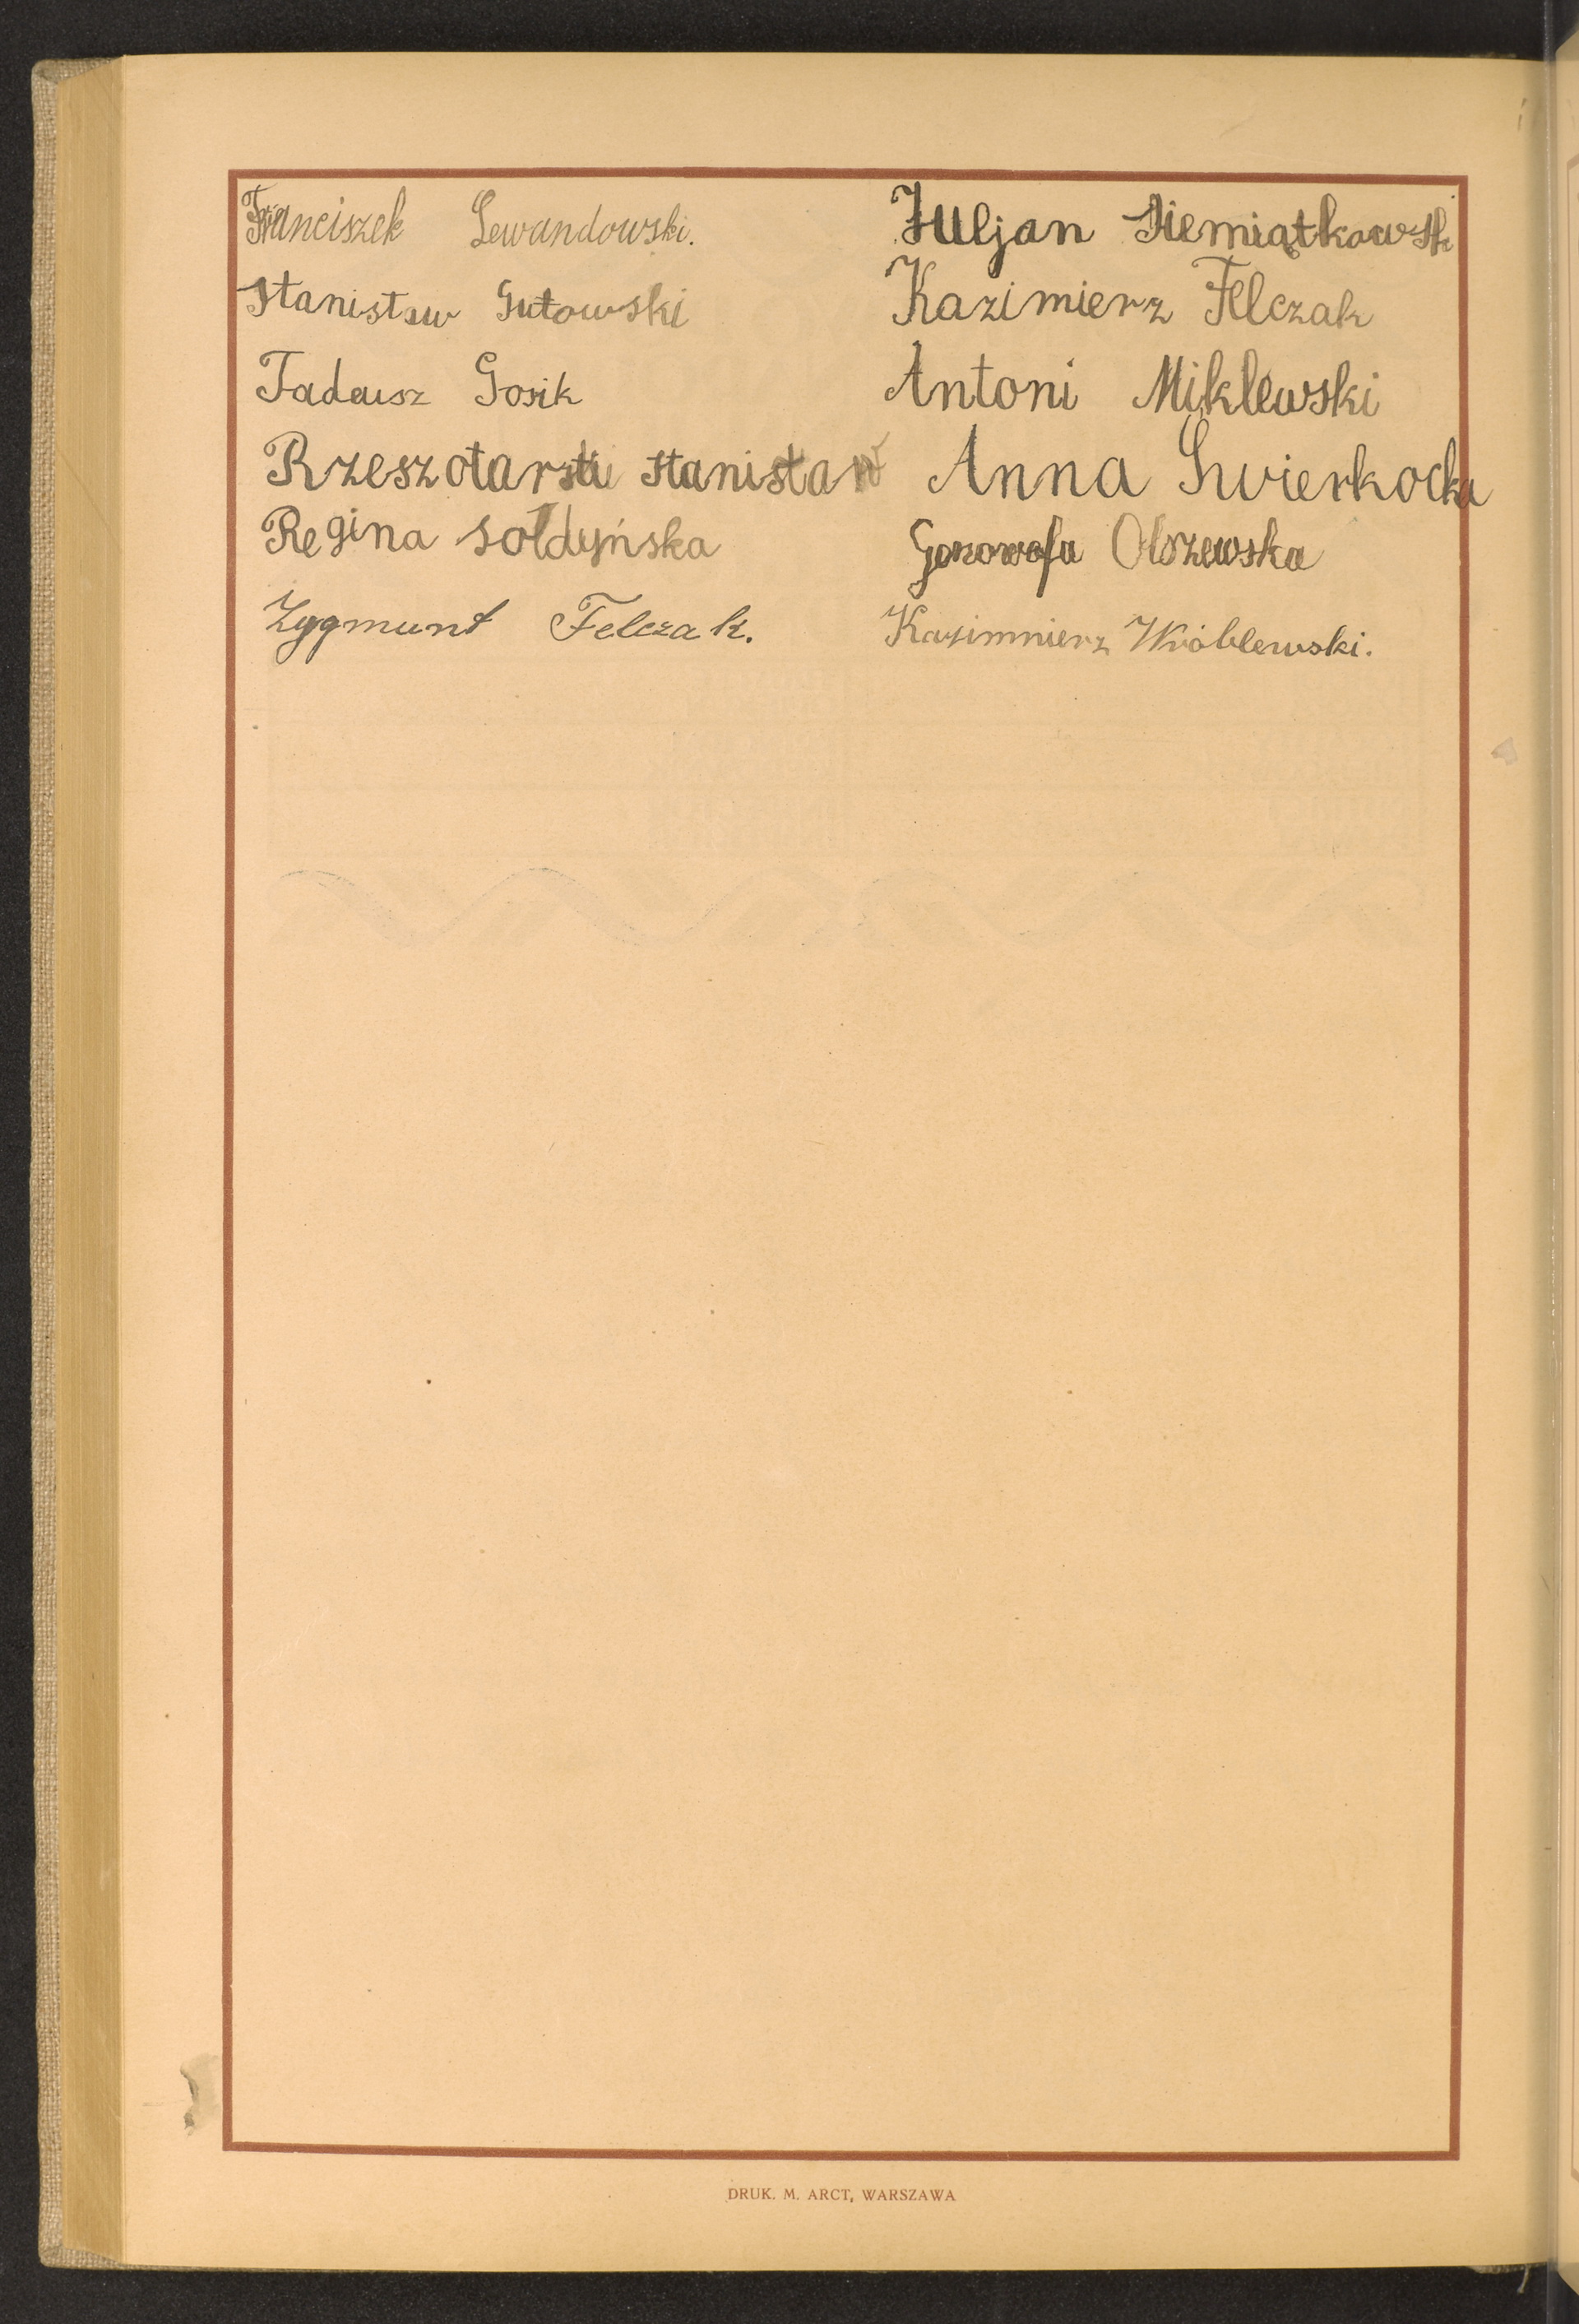 Franciszek Lewandowski.
Stanistaw Gutowski
Tadeusz Gosik
Rzeszotarski Stanistaw
Regina Sołdyńska
Zygmunt Felczak.
Juljan Siemiątkowski
Kazimierz Felczak
Antoni Miklewski
Anna Świerkocka
Genowefa Olszewska
Kazimnierz Wróblewski.
DRUK. M. ARCT, WARSZAWA